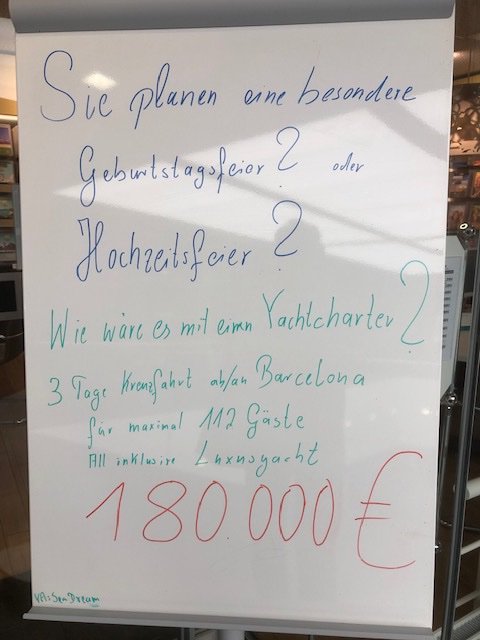 Sie planen eine besondere
Geburtstagsfeier? oder
Hochzeitsfeier?
Wie wäre es mit einen Yachtcharter?
3 Tage Kreuzfahrt ab/an Barcelona
für maximal 112 Gäste
All inklusive Luxusyacht
180.000 €
VA: SeaDream